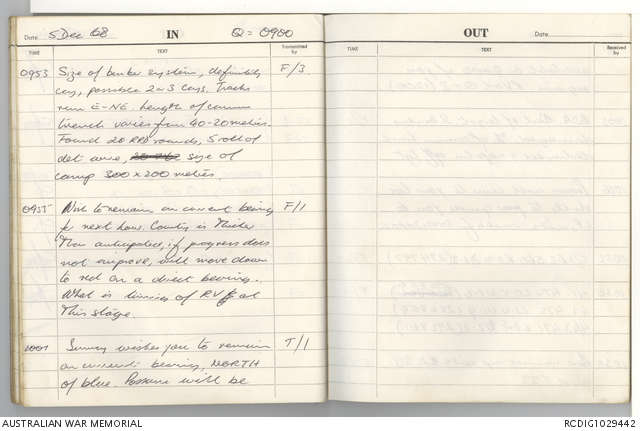 Date 5 Dec 68 IN Q = 0900
TIME TEXT Transmitted by
0953 Size of bunker system, definitely F/3
coy, possible 2 or 3 coys. Tracks
run E-NE. Length of comm
trench varies from 40-20 metres.
Found 20 RPD rounds, 5 roll of
det wire, size of
camp 300 x 200 metres.
0955 Wish to remain on current bearing F/1
for next hour. Country is thicker
than anticipated, if progress does
not improve, will move down
to red on a direct bearing.
What is timing of RV at
this stage.
1001 Sunray wishes you to remain T/1
on current bearing, NORTH
of blue. Possum will be
OUT Date
TIME TEXT Received by
AUSTRALIAN WAR MEMORIAL
RCDIG1029442